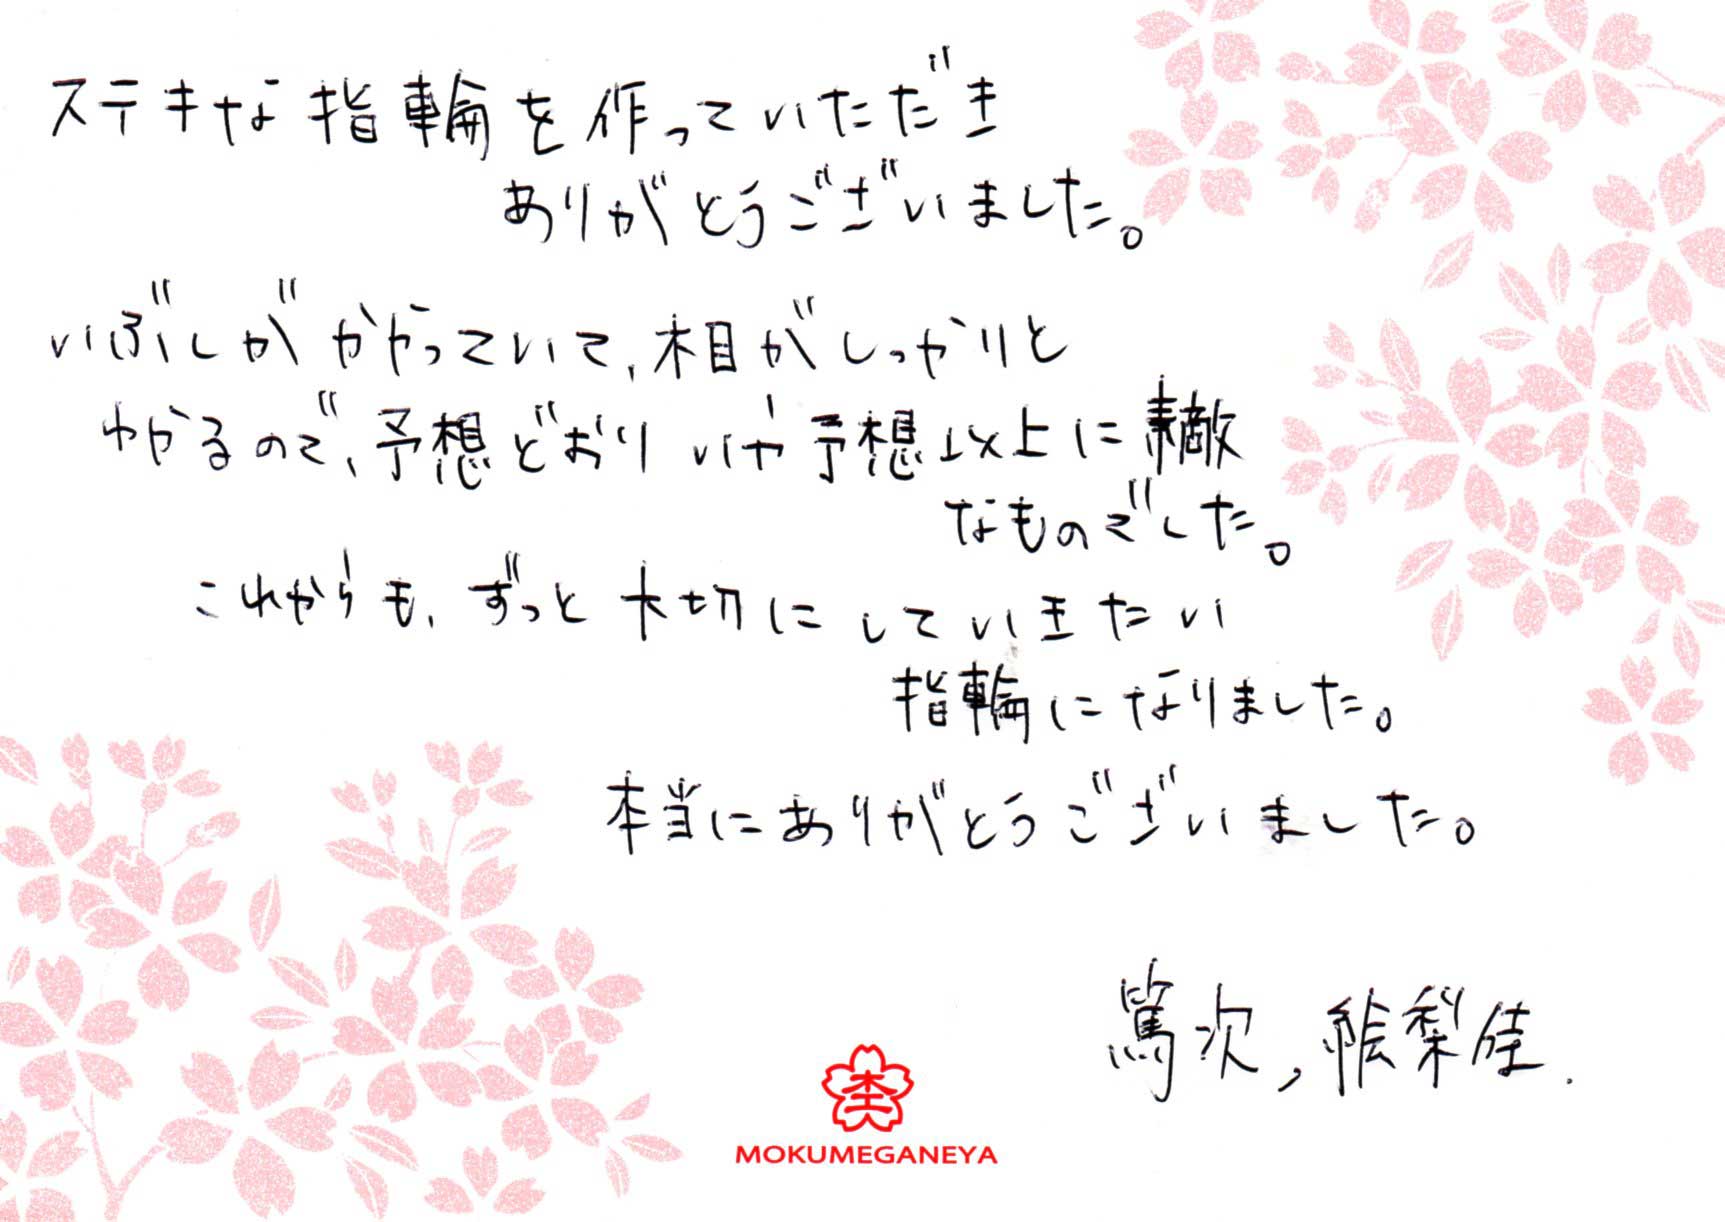 ステキな指輪を作っていただき
ありがとうございました。
いぶしがかかっていて、木目がしっかりと
わかるので、予想どおりいや予想以上に素敵
なものでした。
これからも、ずっと大切にしていきたい
指輪になりました。
本当にありがとうございました。
篤次,絵梨佳.
MOKUMEGANEYA